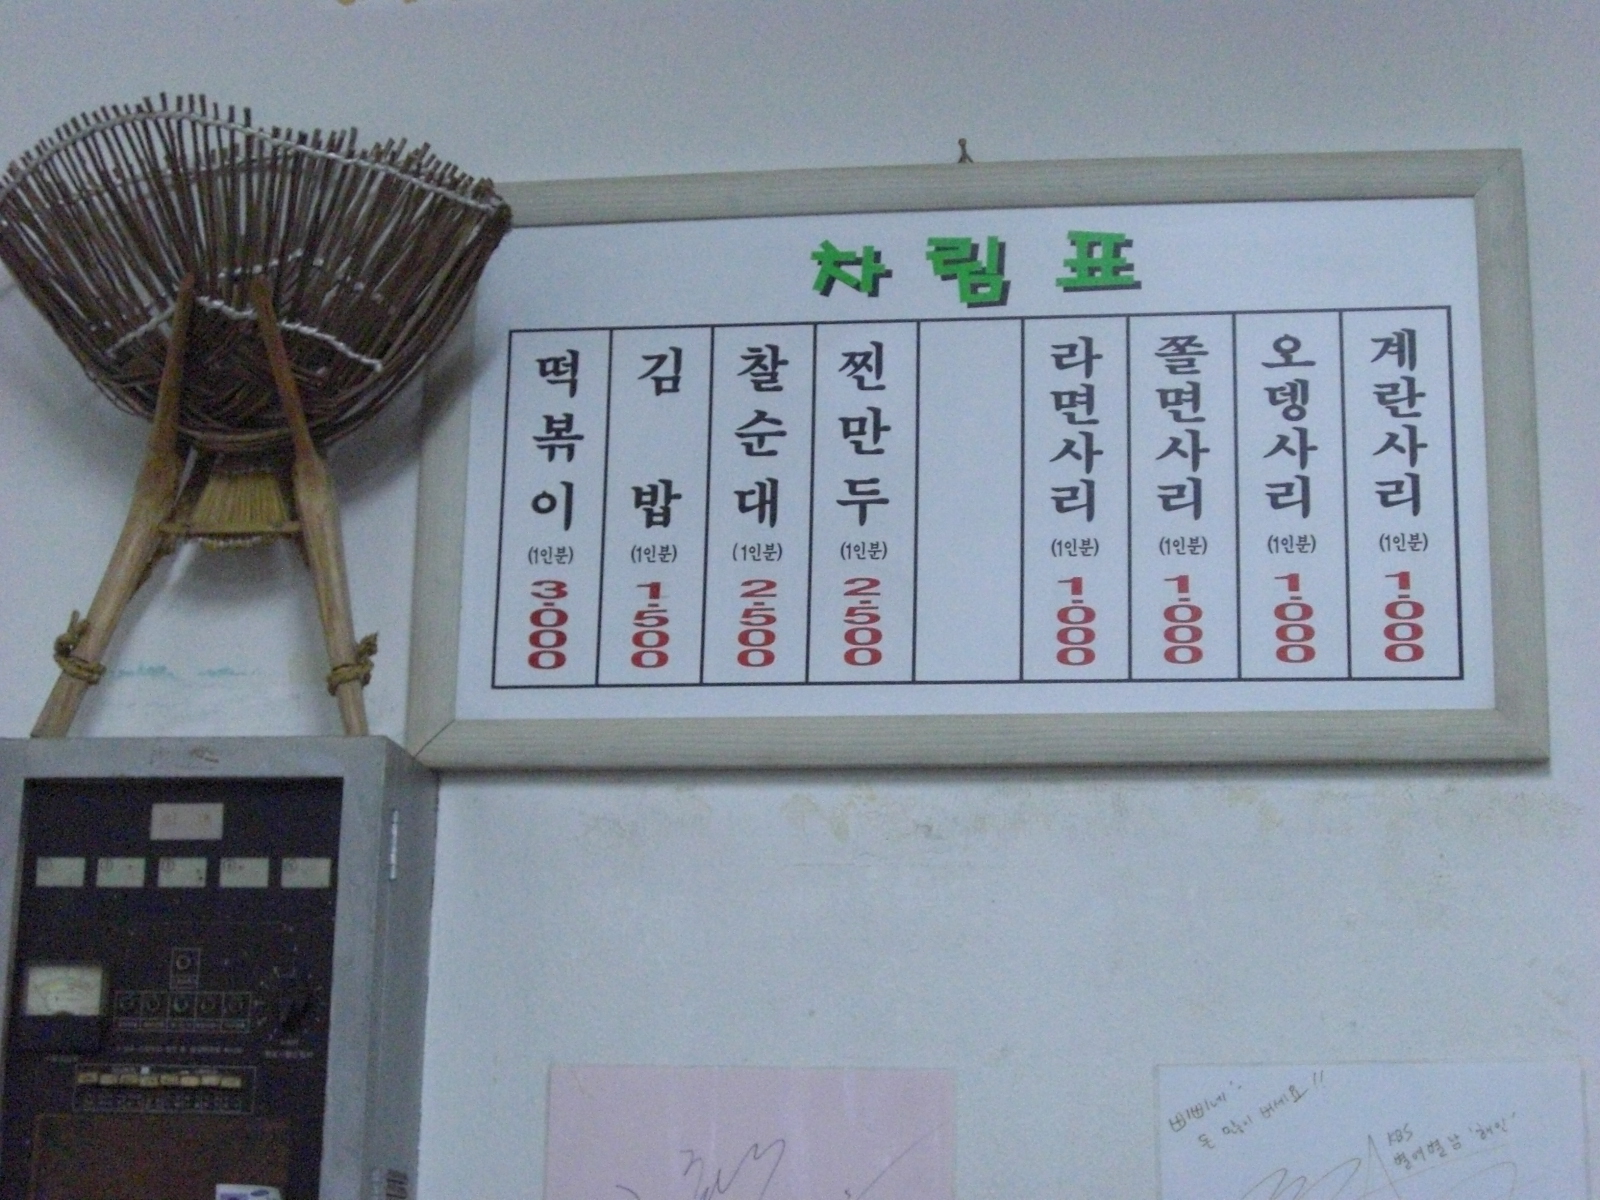 차림표
떡볶이 (1인분) 3.000
김밥 (1인분) 1.500
찰순대 (1인분) 2.500
찐만두 (1인분) 2.500
라면사리 (1인분) 1.000
쫄면사리 (1인분) 1.000
오뎅사리 (1인분) 1.000
계란사리 (1인분) 1.000
돈 많이 버세요!!
KBS